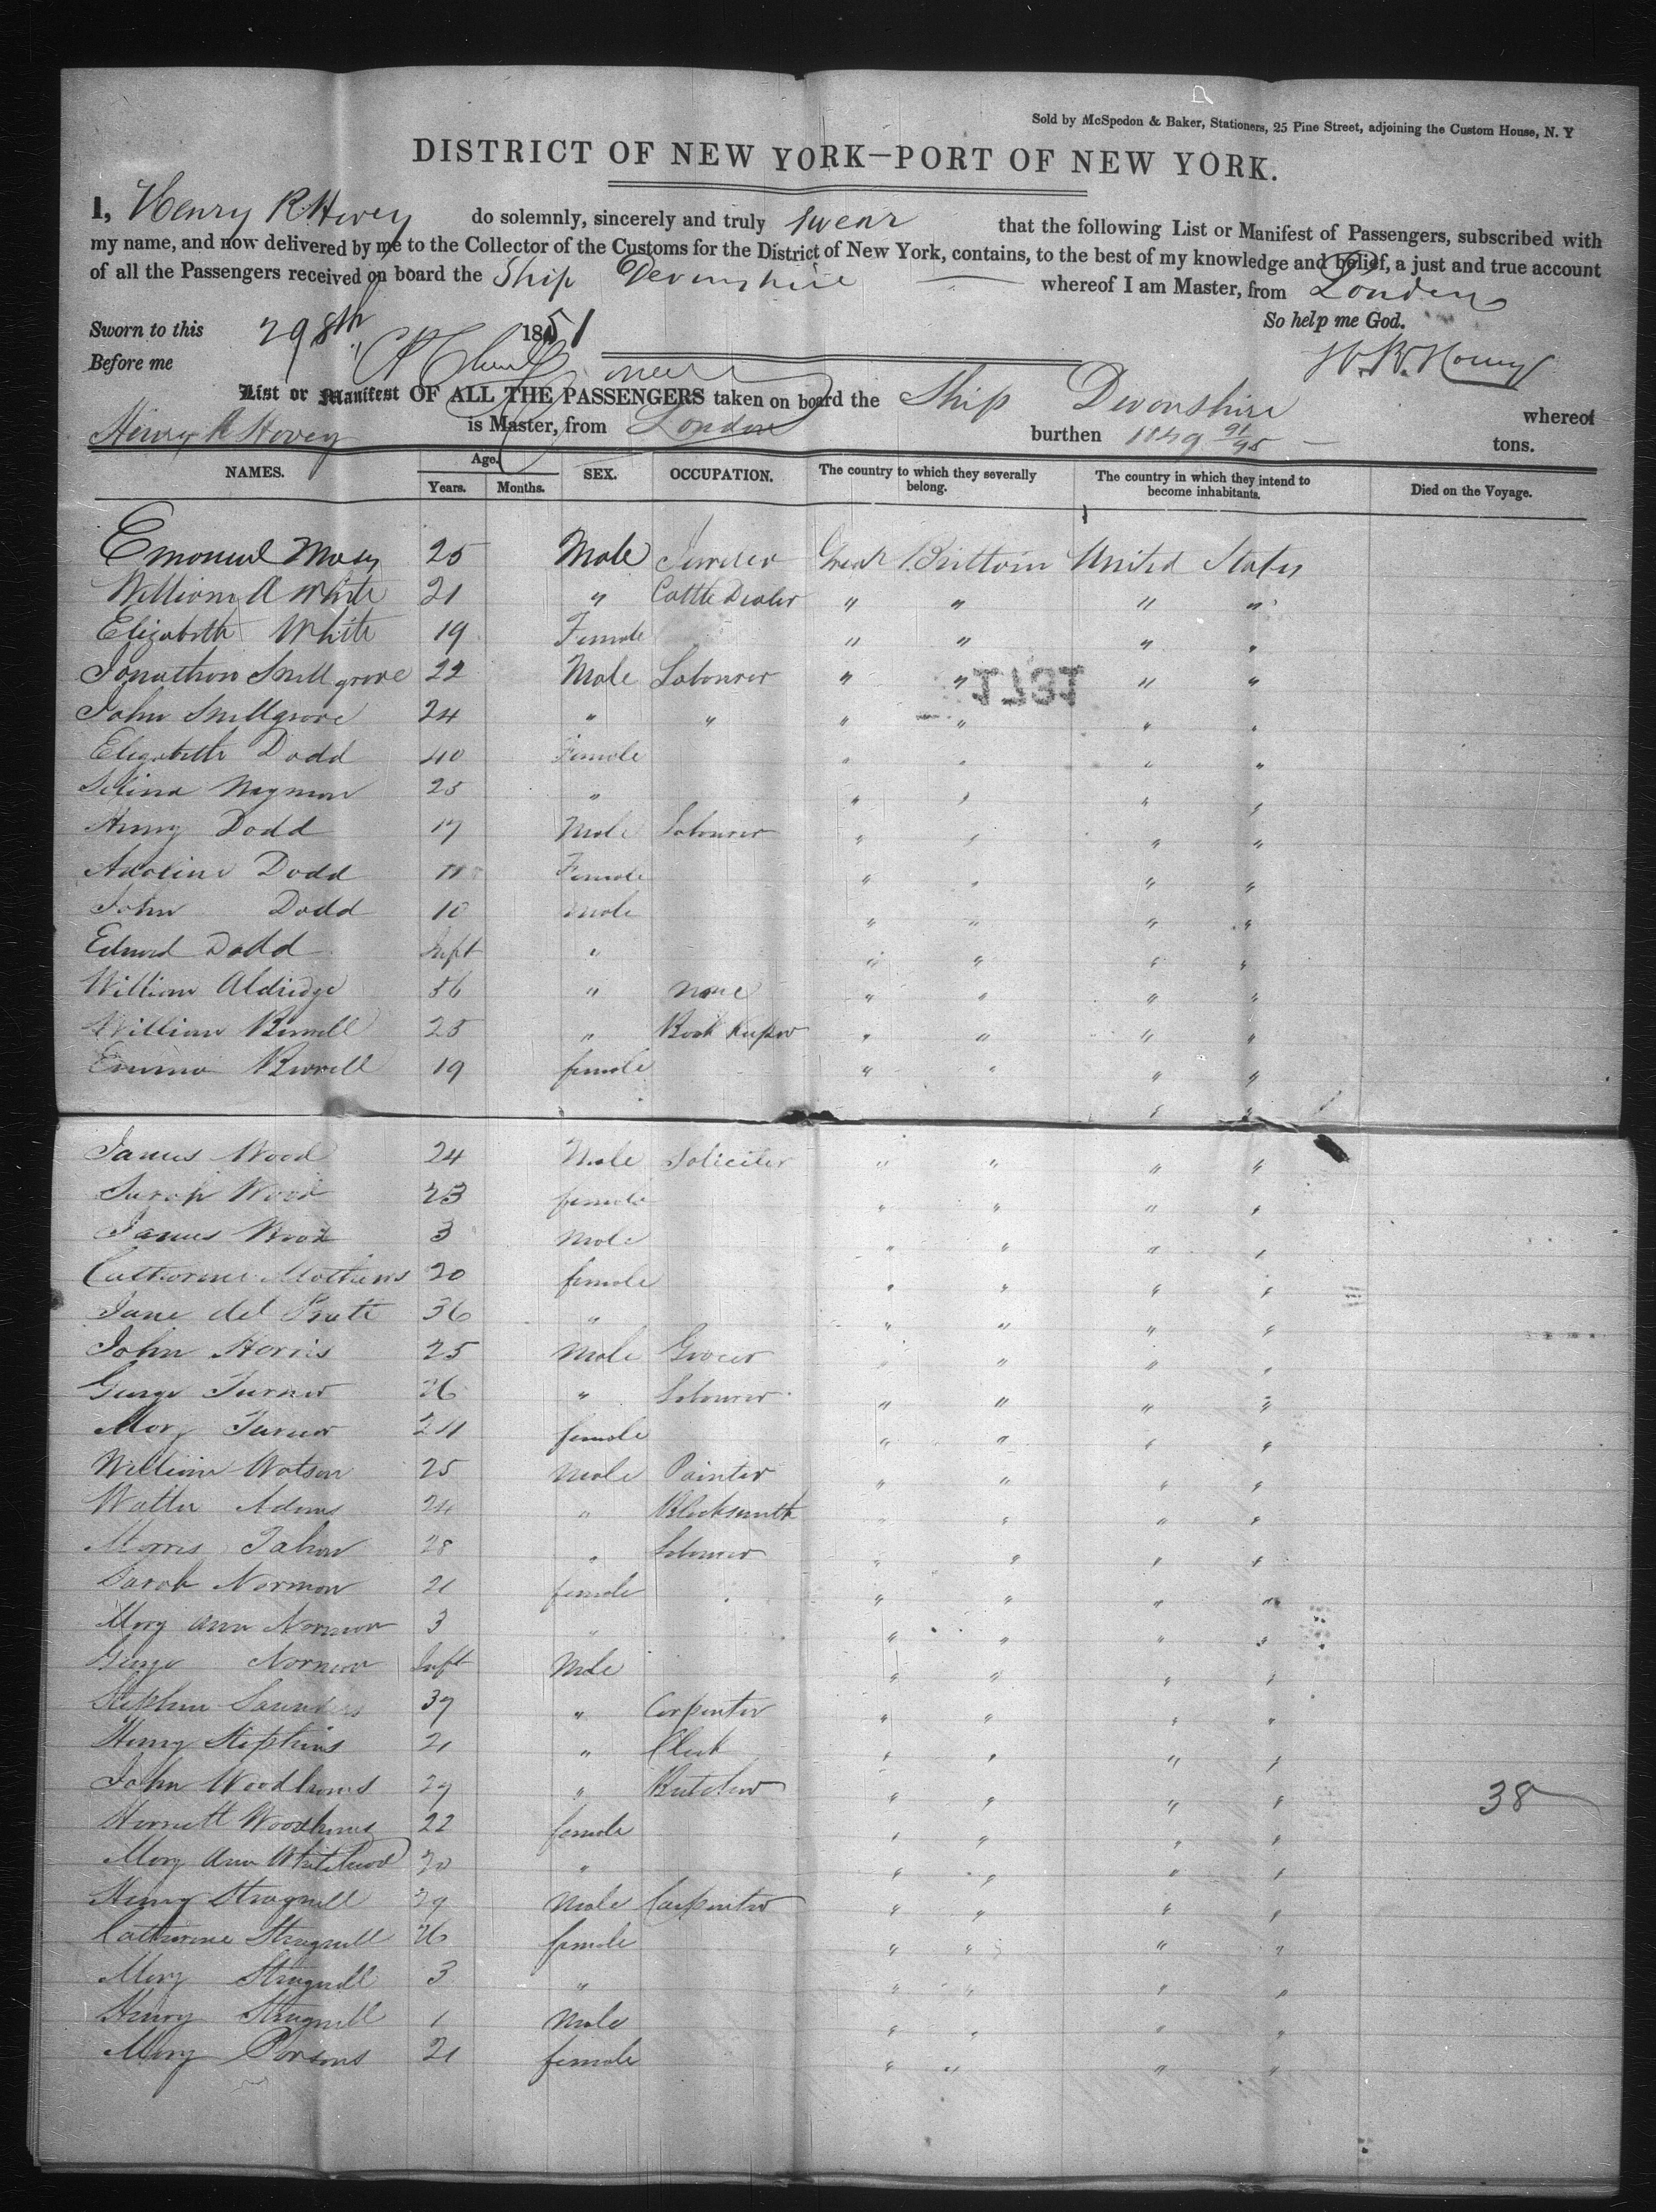 Sold by McSpedon & Baker, Stationers, 25 Pine Street, adjoining the Custom House, N. Y
DISTRICT OF NEW YORK—PORT OF NEW YORK.
I, Henry R Hovey do solemnly, sincerely and truly swear that the following List or Manifest of Passengers, subscribed with
my name, and now delivered by me to the Collector of the Customs for the District of New York, contains, to the best of my knowledge and belief, a just and true account
of all the Passengers received on board the Ship Devonshire — whereof I am Master, from London
So help me God.
Sworn to this 1851
Before me H. R. Hovey
List or Manifest OF ALL THE PASSENGERS taken on board the Ship Devonshire whereof
Henry R Hovey is Master, from London burthen 91/95 — tons.
NAMES. Age. Years. Months. SEX. OCCUPATION. The country to which they severally belong. The country in which they intend to become inhabitants. Died on the Voyage.
25 Male Jeweler Great Brittain United States
William A White 21 " Cattle Dealer " " " "
Elizabeth White 19 Female " " " "
Jonathan Snellgrove 22 Male Labourer " " " "
1731
John Snellgrove 24 " " " " " "
Elizabeth Dodd 40 Female " " " "
Selina 25 " " " " "
Henry Dodd 17 Male Labourer " " " "
Adeline Dodd Female " " " "
John Dodd 10 Male " " " "
Edward Dodd Inft " " " " "
William Aldridge 56 " None " " " "
William Burrell 25 " Book Keeper " " " "
Emma Burrell 19 female " " " "
" "
James Wood 24 Male Soliciter " " " "
Sarah Wood 23 female " " " "
James Wood 3 Male " " " "
Catherine Mathews 20 female " " " "
Jane del 36 " " " " "
John Harris 25 Male Grocer " " " "
George Turner 26 " Labourer " " " "
Mary Turner 24 female " " " "
William Watson 25 Male Painter " " " "
Walter Adams 24 " Blacksmith " " " "
Morris 28 " Labourer " " " "
Sarah Norman 21 female " " " "
Mary Ann Norman 3 " " " " "
George Norman Inft Male " " " "
Stephen Saunders 37 " Carpenter " " " "
Henry Stephens 21 " Clerk " " " "
John Woodhams 27 " Butcher " " " " 38
Harriett Woodhams 22 female " " " "
Mary Ann Whitehead 20 " " " " "
Henry Stragnell 29 Male Carpenter " " " "
Catherine Stragnell 26 female " " " "
Mary Stragnell 3 " " " " "
Henry Stragnell 1 Male " " " "
Mary Parsons 21 female " " " "